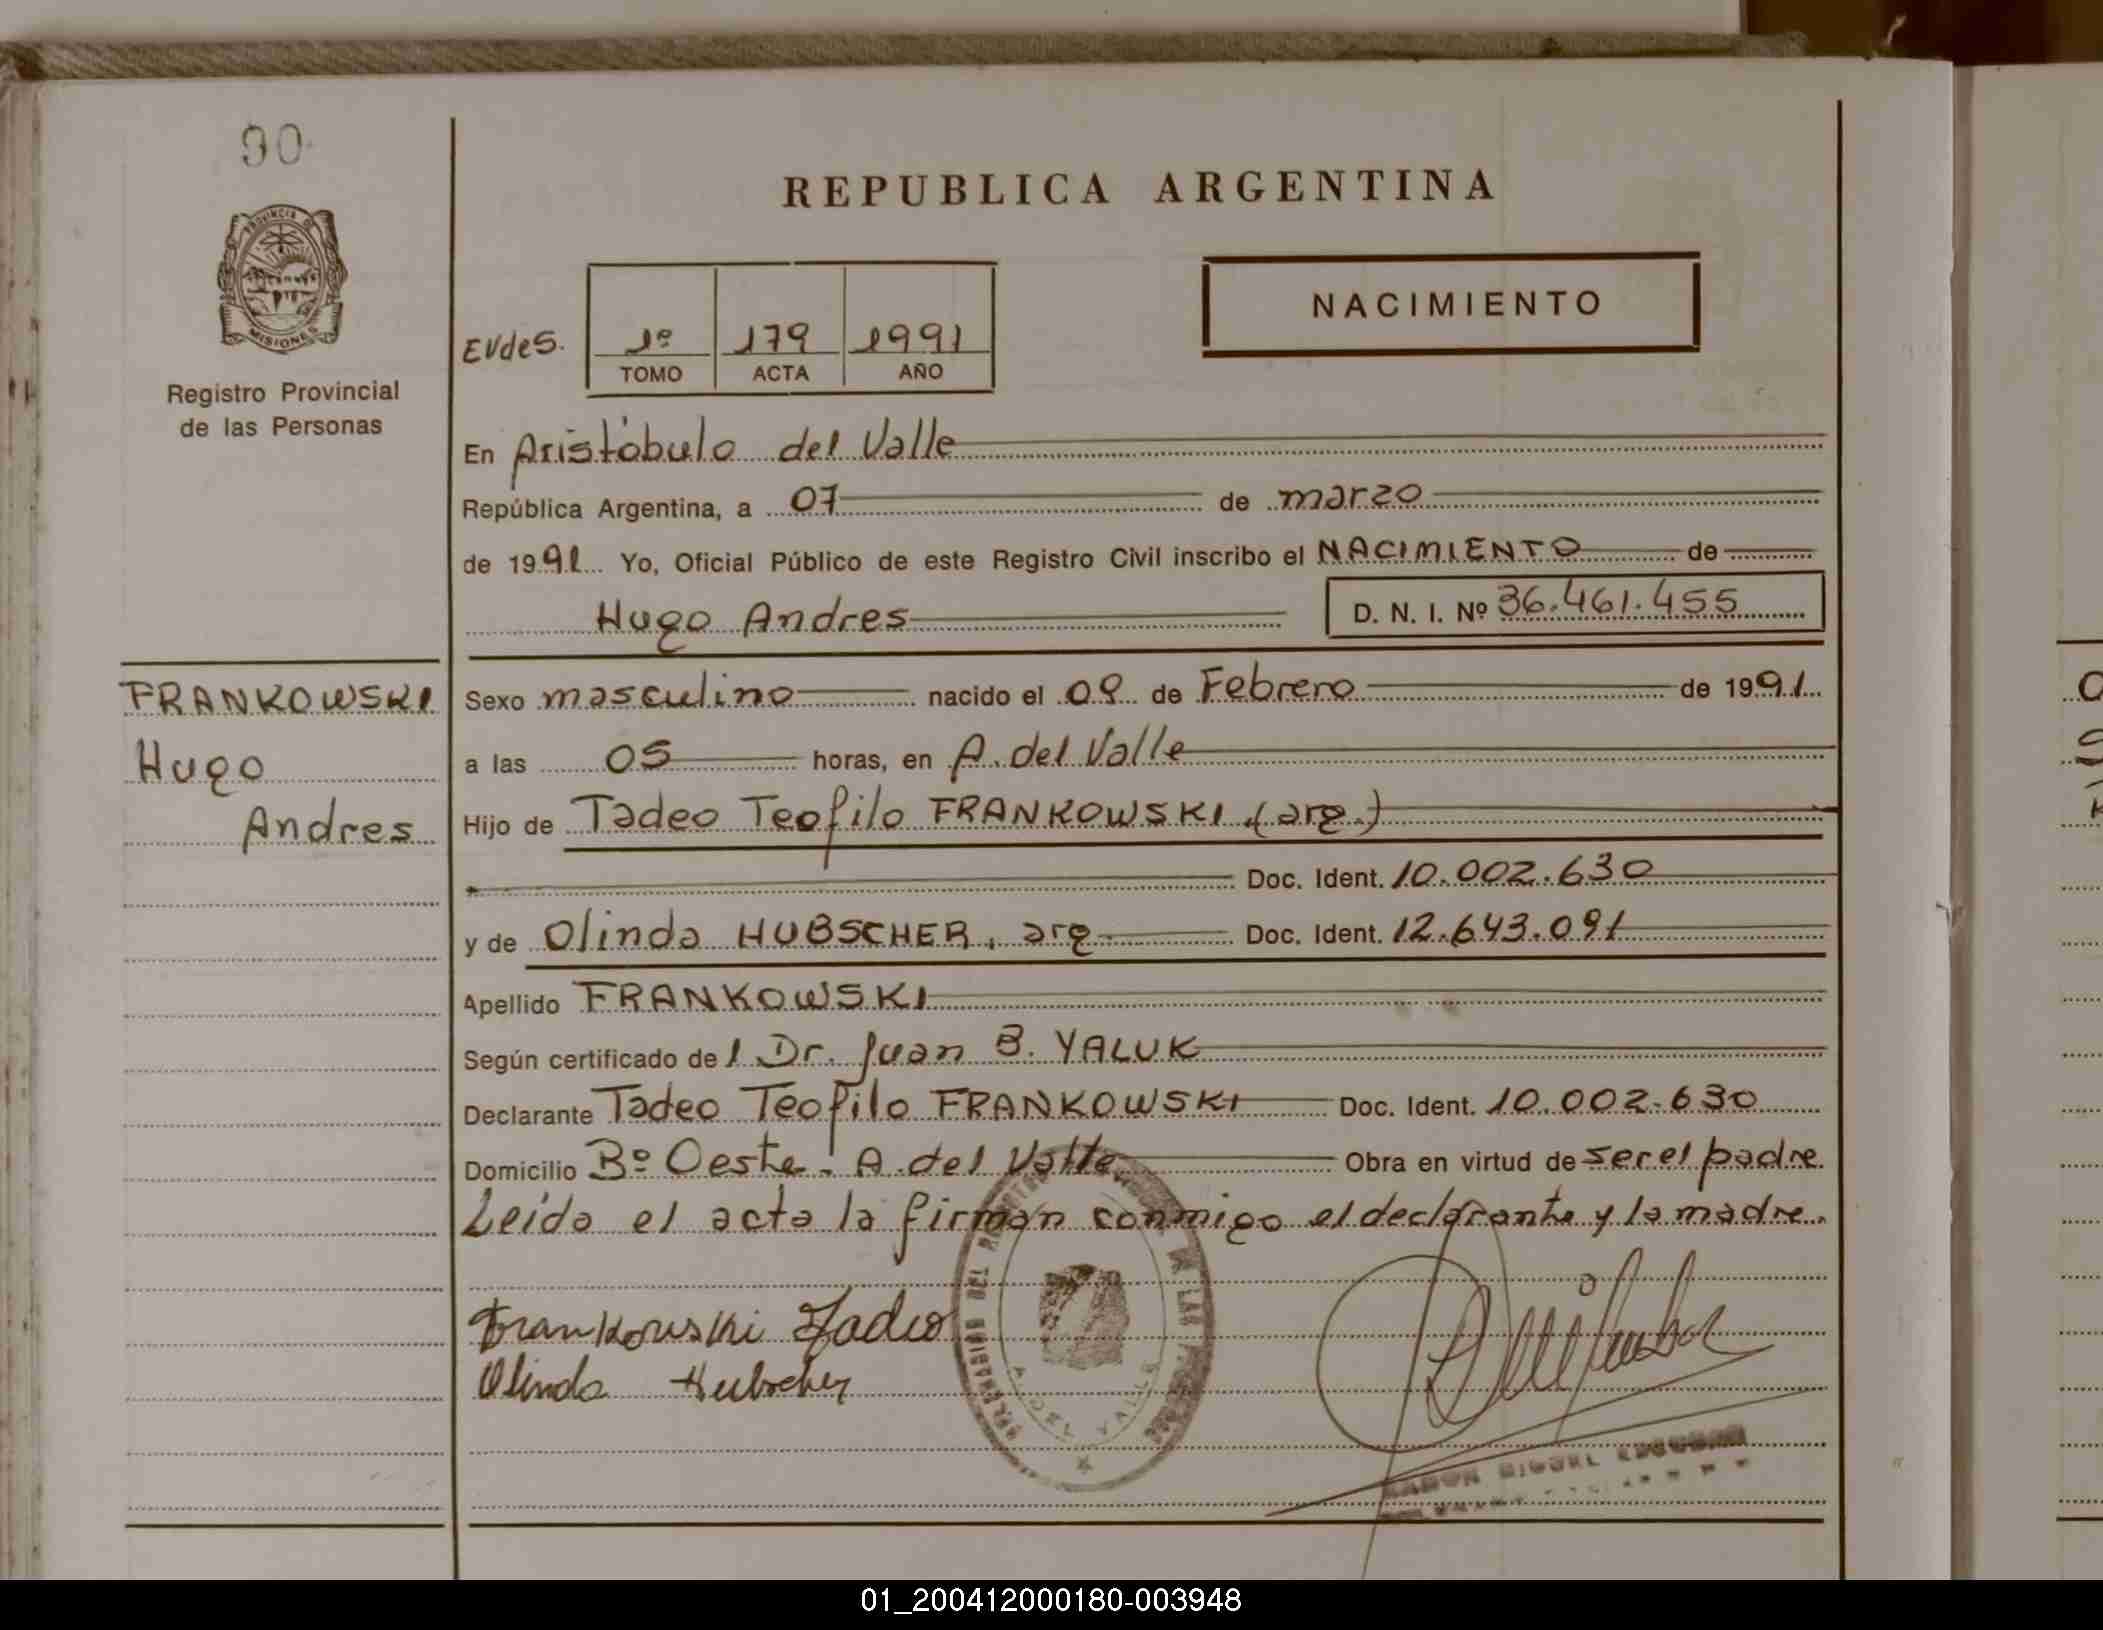 90
PROVINCIA DE
MISIONES
Registro Provincial
de las Personas
REPUBLICA ARGENTINA
NACIMIENTO
EVdeS. 1º 179 1991
TOMO ACTA AÑO
En Aristóbulo del Valle
República Argentina, a 07 de marzo
de 1991 Yo, Oficial Público de este Registro Civil inscribo el NACIMIENTO de
Hugo Andres D. N. I. Nº 36.461.455
FRANKOWSKI
Hugo
Andres
Sexo masculino nacido el 09 de Febrero de 1991
a las 05 horas, en A. del Valle
Hijo de Tadeo Teofilo FRANKOWSKI (arg.)
Doc. Ident. 10.002.630
y de Olinda HUBSCHER, arg Doc. Ident. 12.643.091
Apellido FRANKOWSKI
Según certificado de l Dr. Juan B. YALUK
Declarante Tadeo Teofilo FRANKOWSKI Doc. Ident. 10.002.630
Domicilio Bº Oeste. A. del Valle Obra en virtud de ser el padre.
Leída el acta la firman conmigo el declarante y la madre.
Frankowski Tadeo
Olinda Hubscher
DEL VALLE
RAMON MIGUEL
01_200412000180-003948